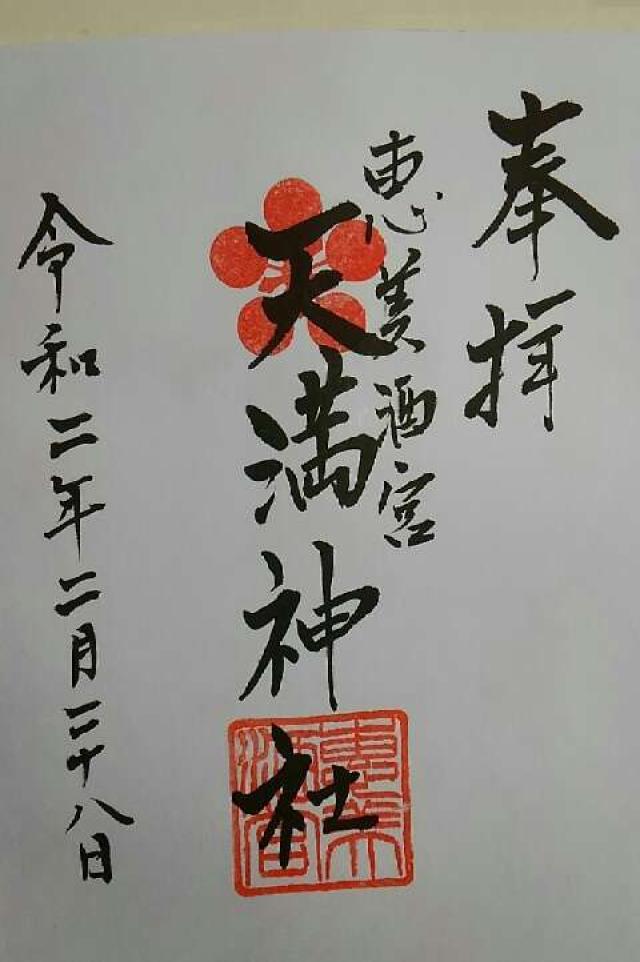 奉拝
恵美酒宮
天満神社
令和二年二月二十八日
恵美酒宮